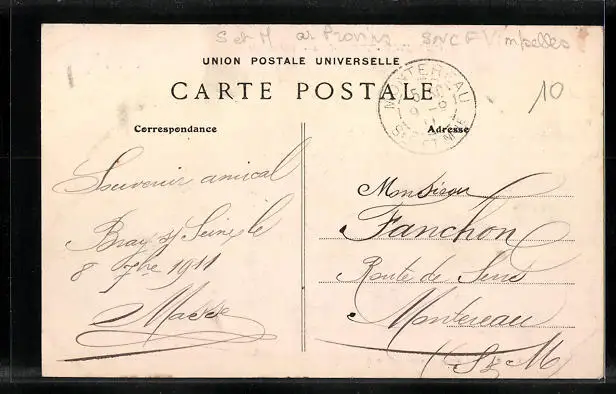 S et M ar Provins SNCF Vimpelles
UNION POSTALE UNIVERSELLE
CARTE POSTALE
10
MONTEREAU
SNE ET MNE
Correspondance
Adresse
Souvenir amical
Bray s/ Seine le
8 7bre 1911
Masse
Monsieur
Fanchon
Route de Sens
Montereau
(S & M)